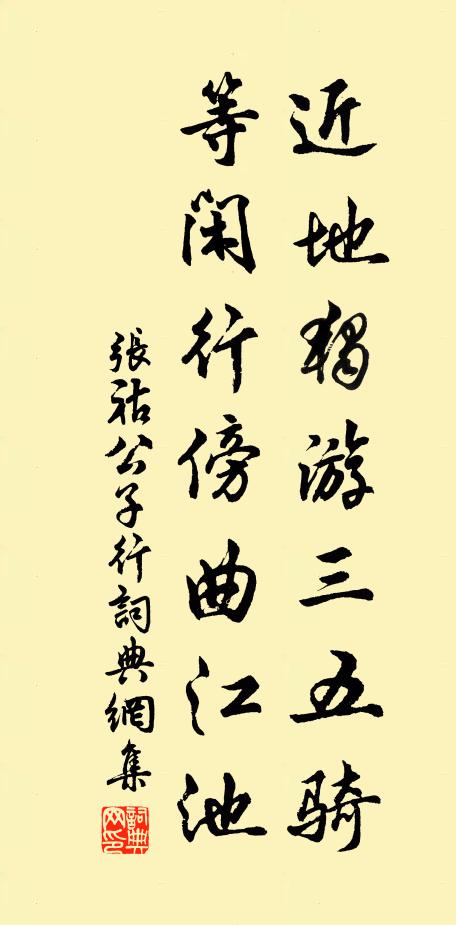 近地独游三五骑
等闲行傍曲江池
張祜公子行詞典網集
詞典网印